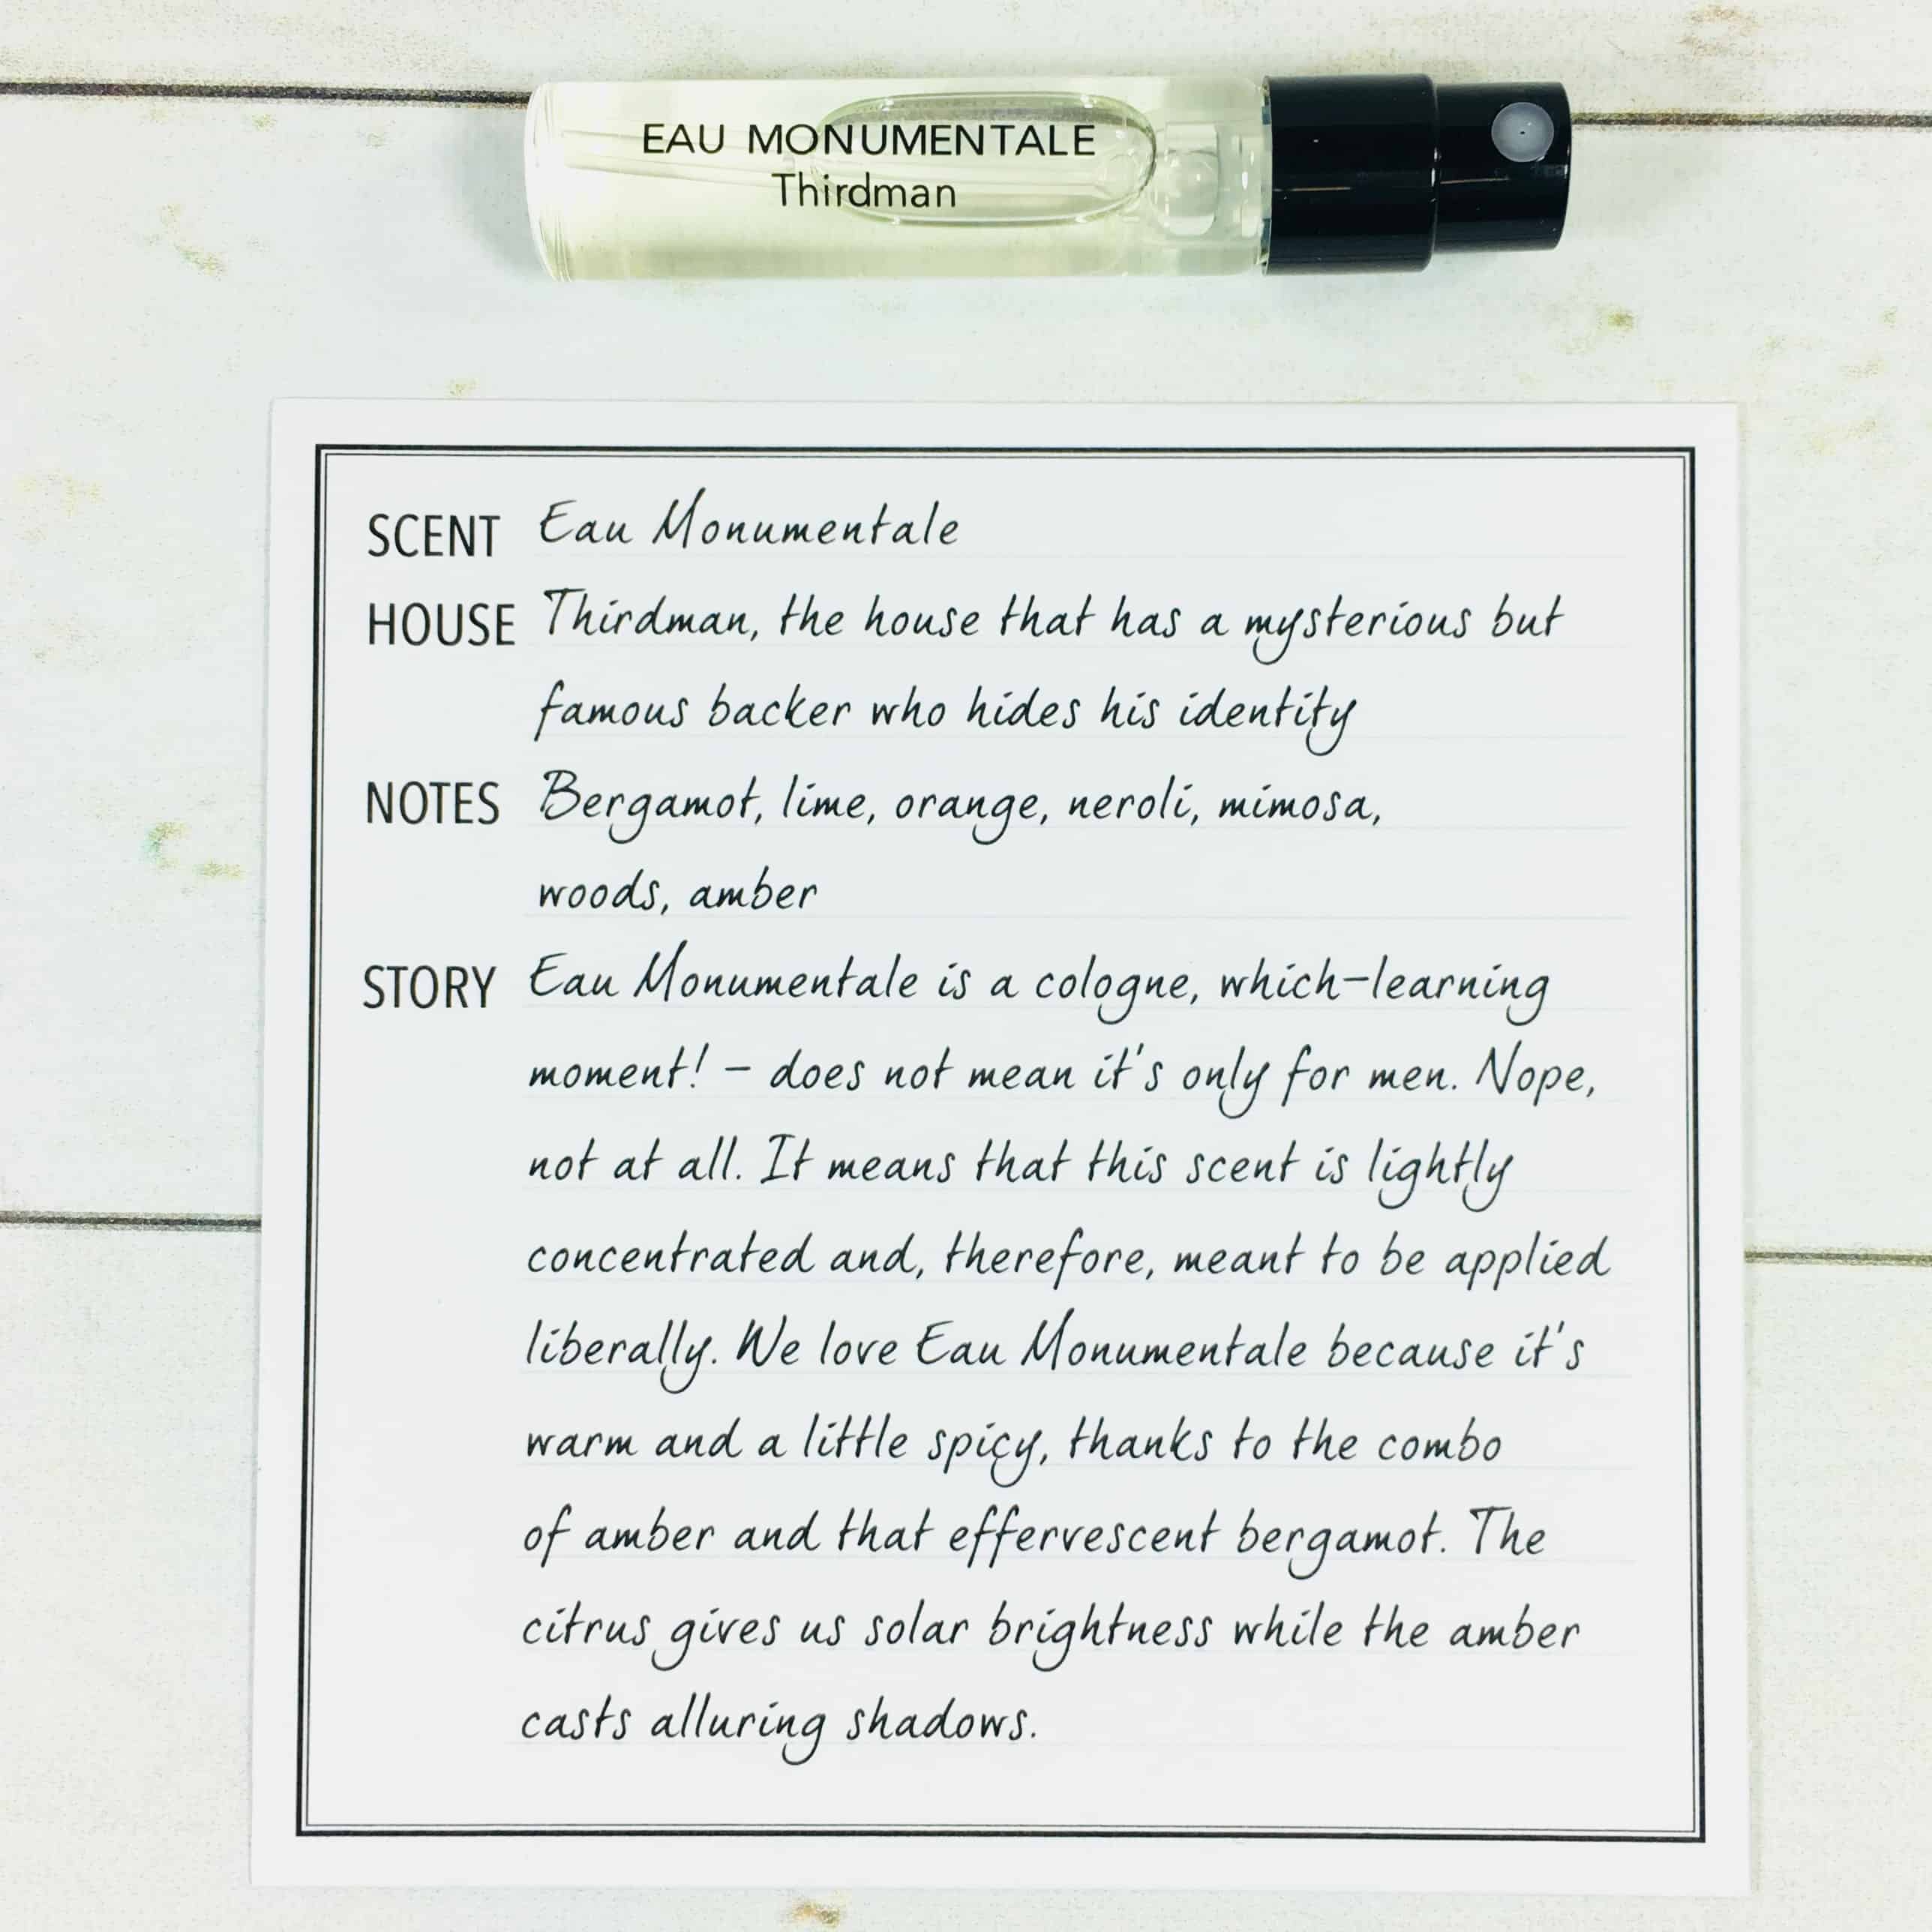 EAU MONUMENTALE
Thirdman
SCENT Eau Monumentale
HOUSE Thirdman, the house that has a mysterious but
famous backer who hides his identity
NOTES Bergamot, lime, orange, neroli, mimosa,
woods, amber
STORY Eau Monumentale is a cologne, which-learning
moment! - does not mean it's only for men. Nope,
not at all. It means that this scent is lightly
concentrated and, therefore, meant to be applied
liberally. We love Eau Monumentale because it's
warm and a little spicy, thanks to the combo
of amber and that effervescent bergamot. The
citrus gives us solar brightness while the amber
casts alluring shadows.